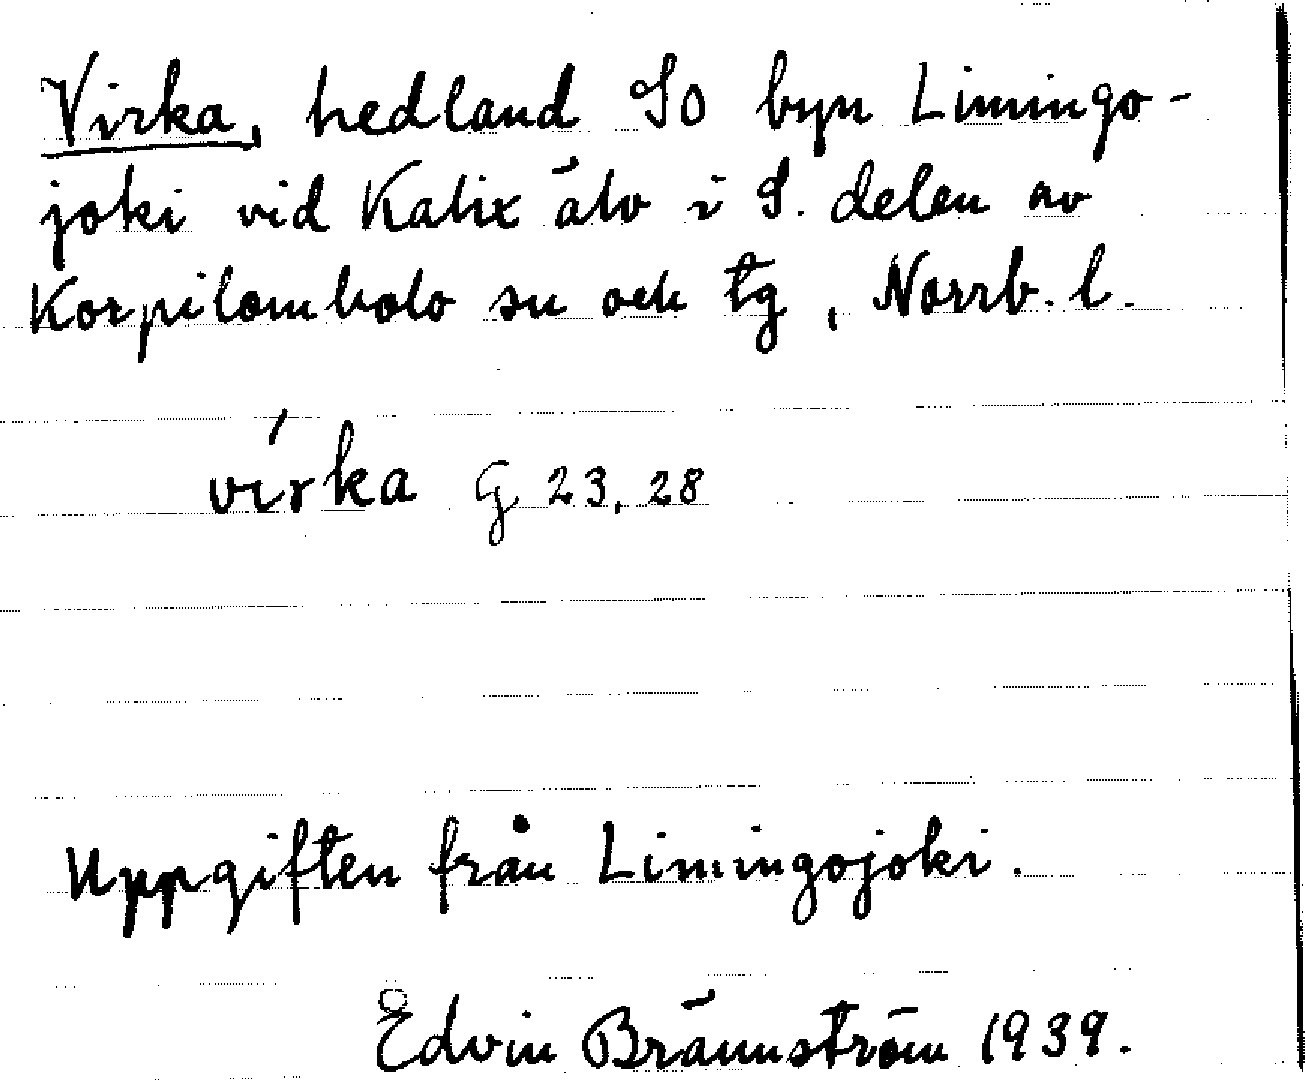 Virka, hedland SO byn Limingo-
joki vid Kalix älv i S. delen av
Korpilombolo sn och tg, Norrb. l.
vírka G 23, 28
Uppgiften från Limingojoki.
Edvin Brännström 1939.